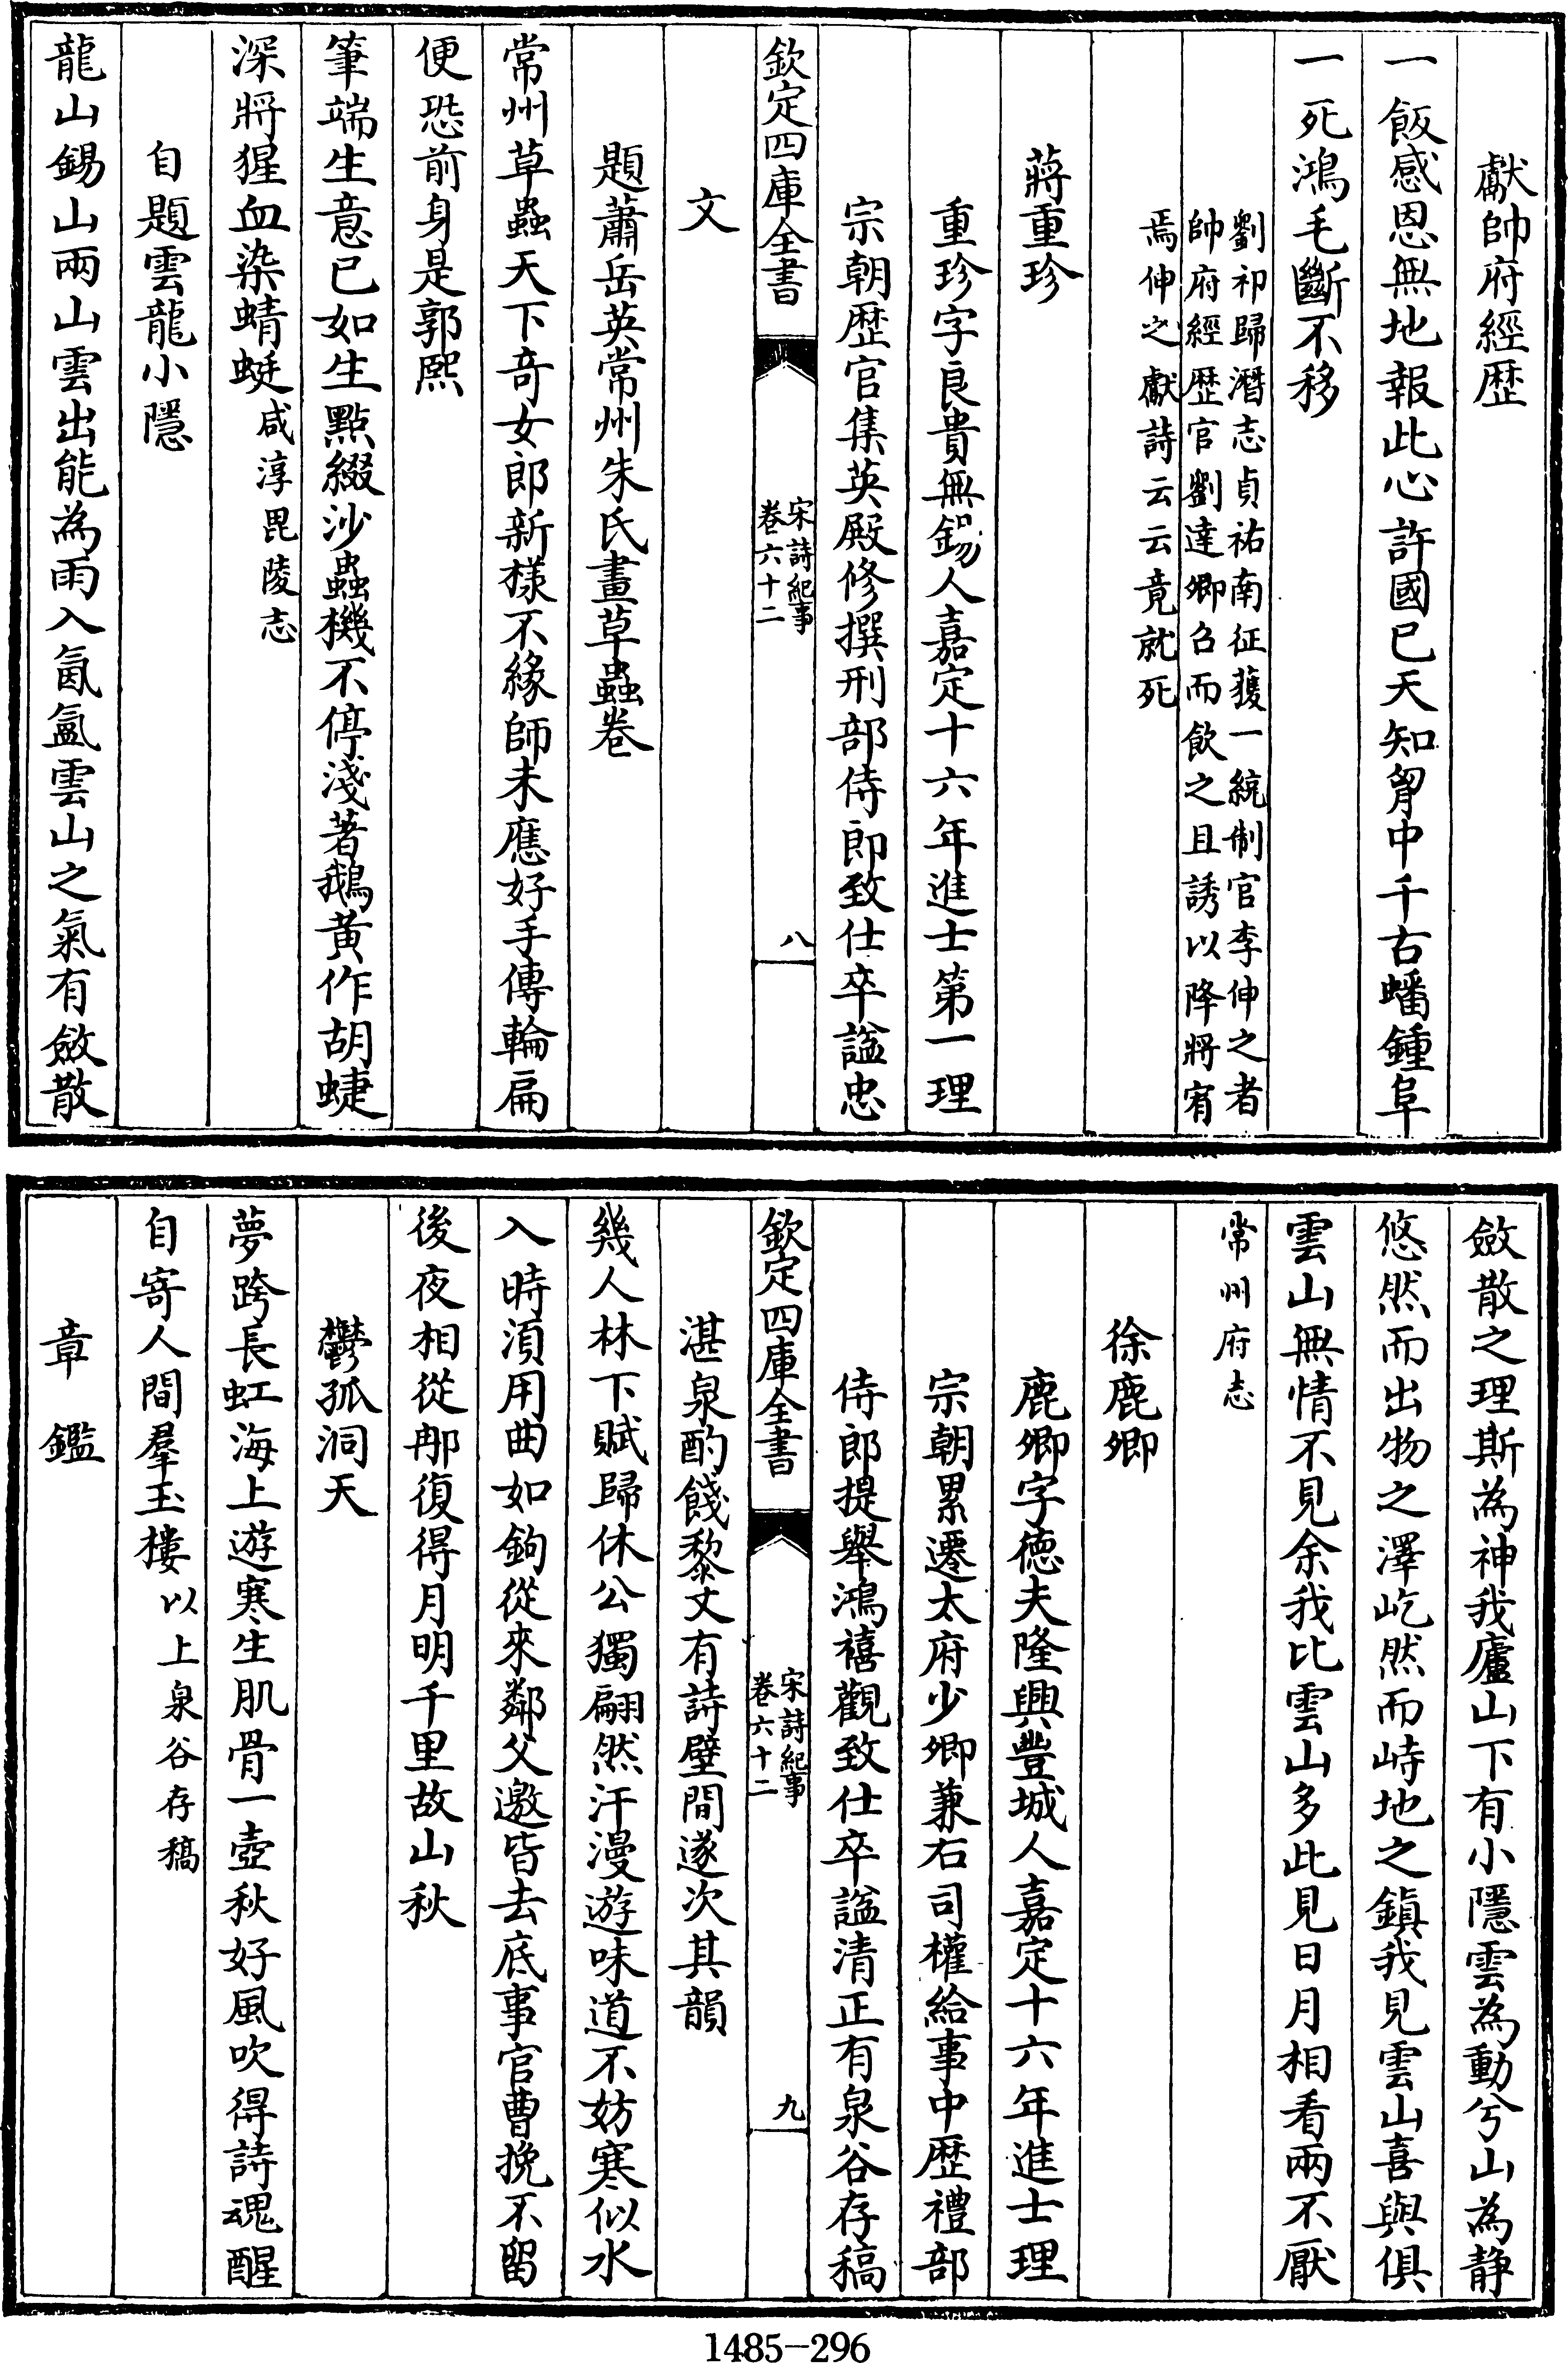 獻帥府經歴
一飯感恩無地報此心許國已天知胷中千古蟠鍾阜
一死鴻毛斷不移
劉祁歸潛志貞祐南征獲一統制官李伸之者
帥府經歴官劉達卿召而飲之且誘以降將宥
焉伸之獻詩云云竟就死
蔣重珍
重珍字良貴無錫人嘉定十六年進士第一理
宗朝歴官集英殿修撰刑部侍郎致仕卒謚忠
欽定四庫全書
宋詩紀事
卷六十二
八
文
題蕭岳英常州朱氏畫草蟲卷
常州草蟲天下竒女郎新様不緣師未應好手傳輪扁
便恐前身是郭熙
筆端生意已如生點綴沙蟲機不停淺著鵝黃作胡蜨
深將猩血染蜻蜓咸淳毘陵志
自題雲龍小隱
龍山錫山兩山雲出能為雨入氤氳雲山之氣有斂散
斂散之理斯為神我廬山下有小隱雲為動兮山為静
悠然而出物之澤屹然而峙地之鎮我見雲山喜與俱
雲山無情不見余我比雲山多此見日月相看兩不厭
常州府志
徐鹿卿
鹿卿字徳夫隆興豐城人嘉定十六年進士理
宗朝累遷太府少卿兼右司權給事中歴禮部
侍郎提舉鴻禧觀致仕卒謚清正有泉谷存稿
欽定四庫全書
宋詩紀事
卷六十二
九
湛泉酌餞黎丈有詩壁間遂次其韻
幾人林下賦歸休公獨翩然汗漫遊味道不妨寒似水
入時湏用曲如鉤從來鄰父邀皆去底事官曹挽不留
後夜相從那復得月明千里故山秋
鬱孤洞天
夢跨長虹海上遊寒生肌骨一壺秋好風吹得詩魂醒
自寄人間羣玉樓以上泉谷存稿
章鑑
1485-296